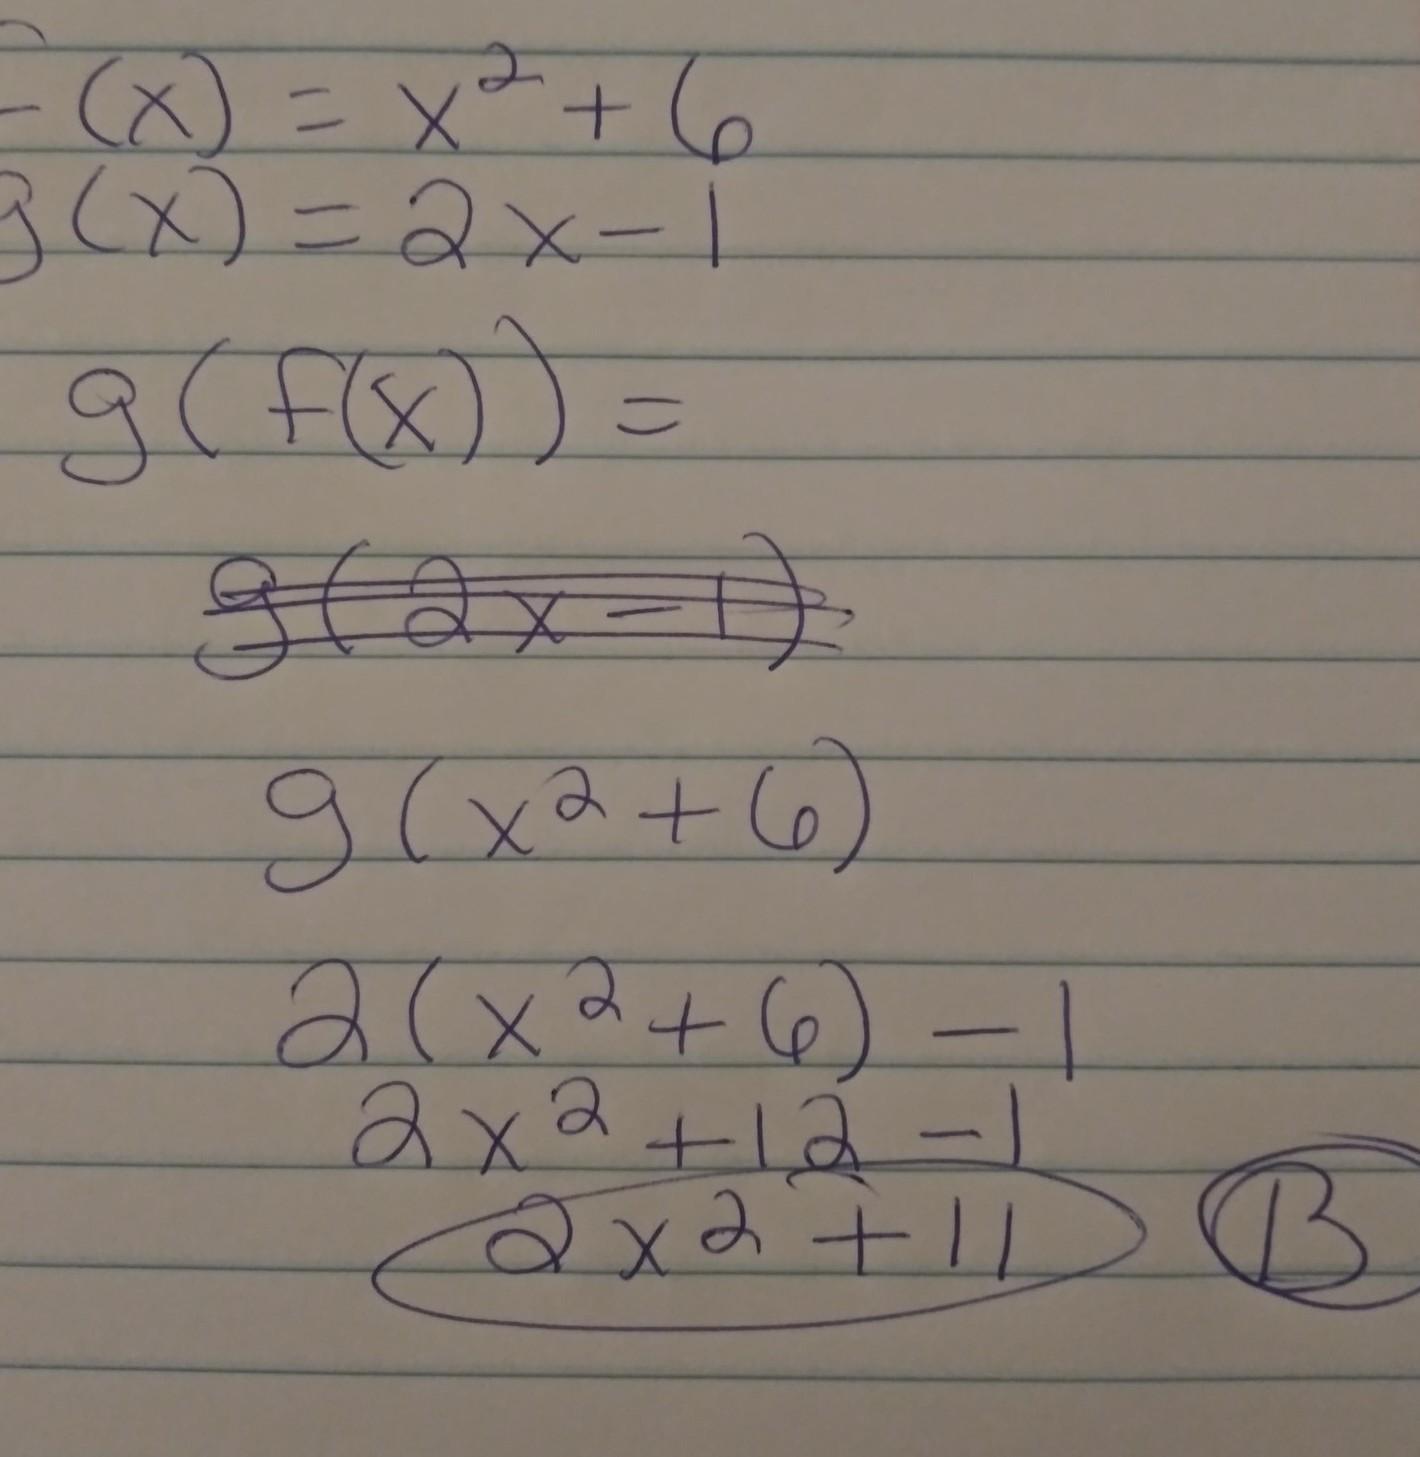 f(x) = x² + 6
g(x) = 2x - 1
g(f(x)) =
g(2x - 1)
g(x² + 6)
2(x² + 6) - 1
2x² + 12 - 1
2x² + 11 B